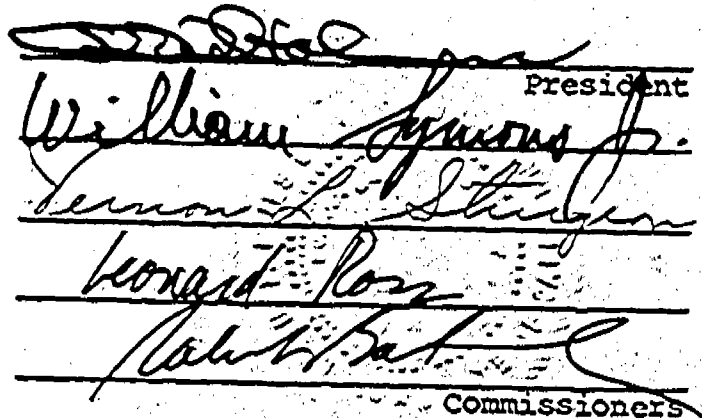 President
William Symons Jr.
Vernon L Sturgeon
Leonard Ross
Commissioners